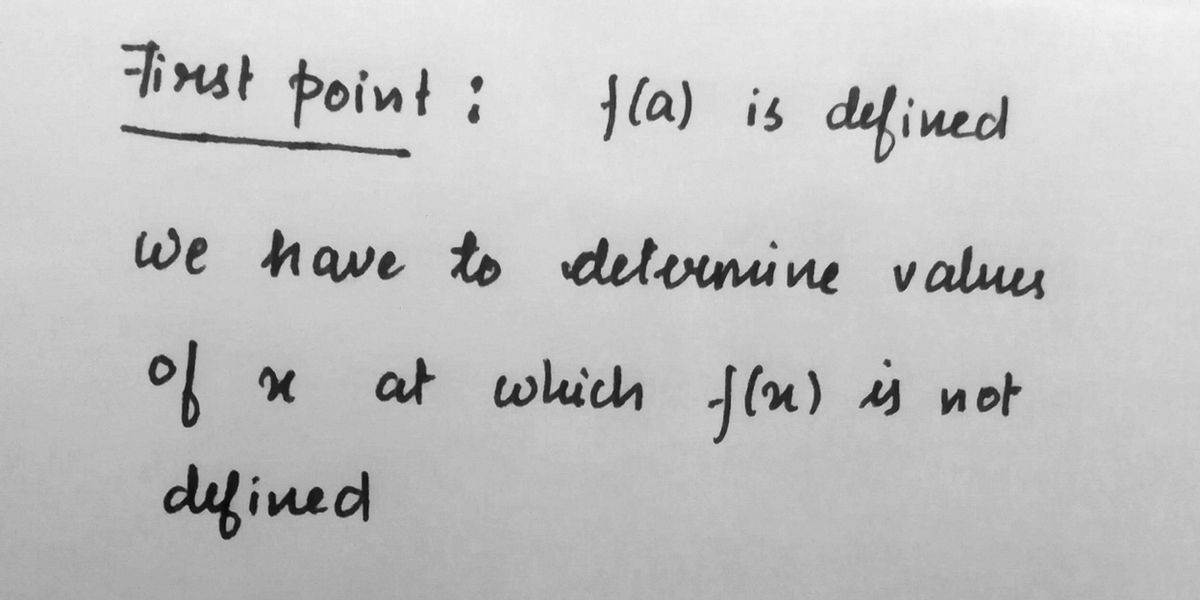 First point : f(a) is defined
We have to determine values
of x at which f(x) is not
defined